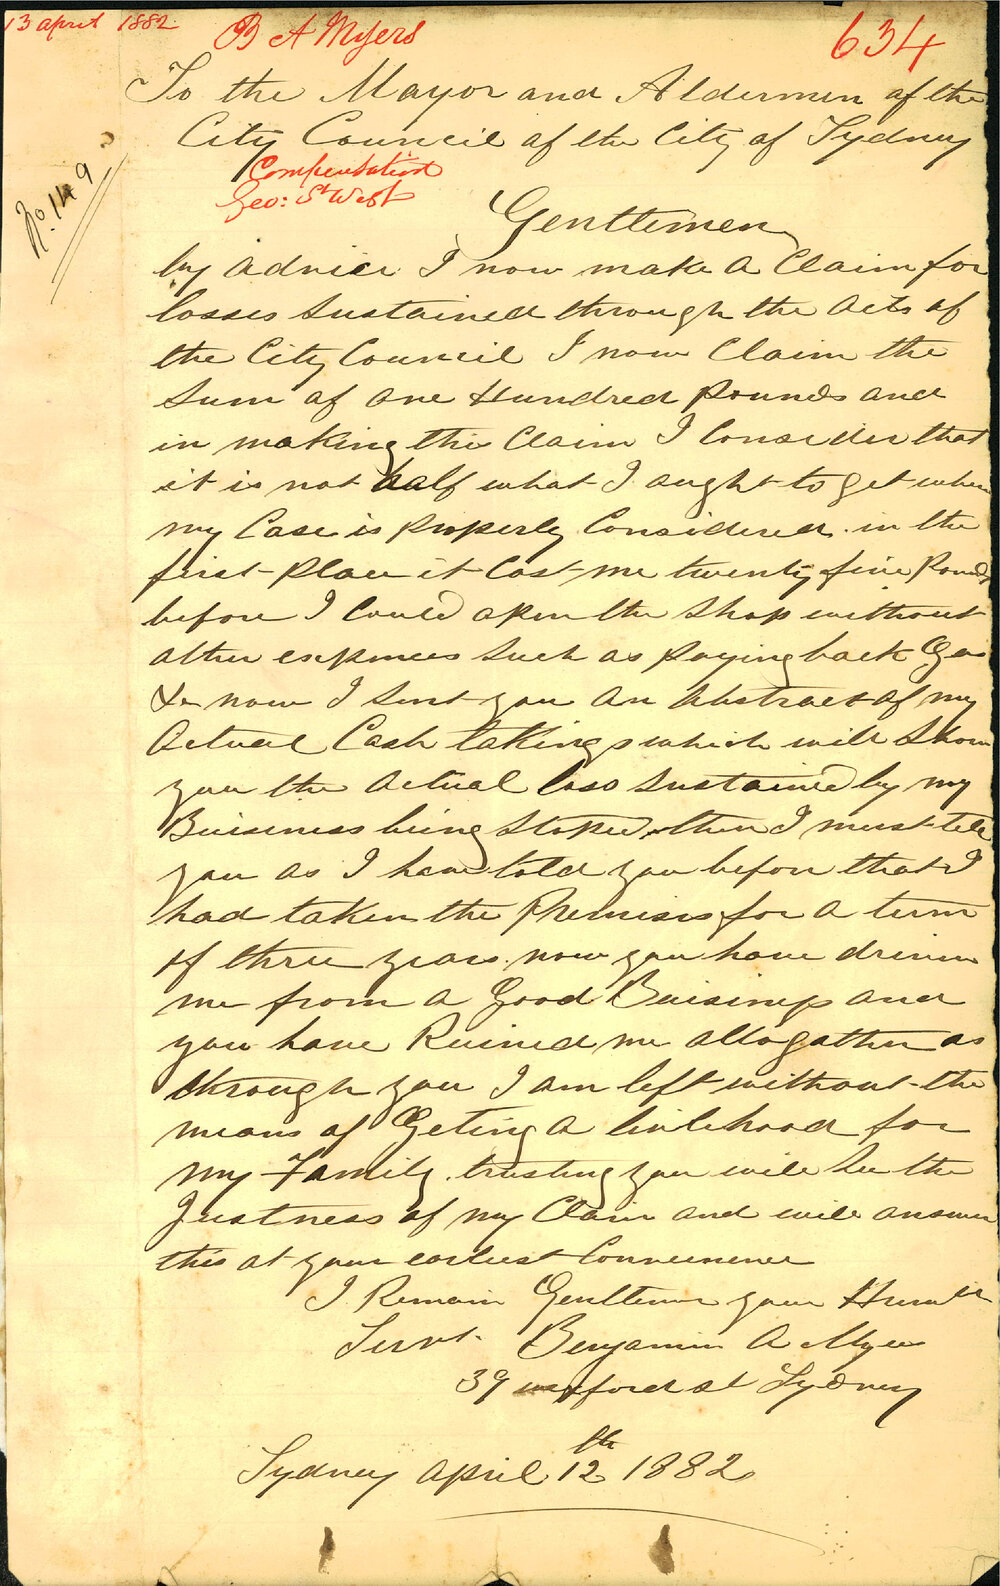 13 april 1882.
B A Myers
634
To the Mayor and Aldermen of the
City Council of the City of Sydney
Compensation
Geo: St West
No. 149
Gentlemen
by advice I now make a Claim for
losses Sustained through the acts of
the City Council I now Claim the
Sum of one Hundred Pounds and
in making this Claim I Consider that
it is not half what I aught to get when
my Case is properly Considered. in the
first place it Cost me twenty five Pounds
before I Could open the Shop without
other expences such as paying back Gas
& now I Sent you an Abstract of my
Actual Cash takings which will Show
you the actual loss sustained by my
Buisiness being Stoped. then I must tell
you as I have told you before that I
had taken the Premises for a term
of three years. now you have driven
me from a Good Buisiness and
you have Ruined me altogather as
through you I am left without the
means of Geting a livlehood for
my Family. trusting you will See the
Justness of my Claim and will answer
this at your earliest Convenience
I Remain Gentlemen your Humble
Servt. Benjamin A Myers
39 wexford st Sydney
Sydney April 12th 1882